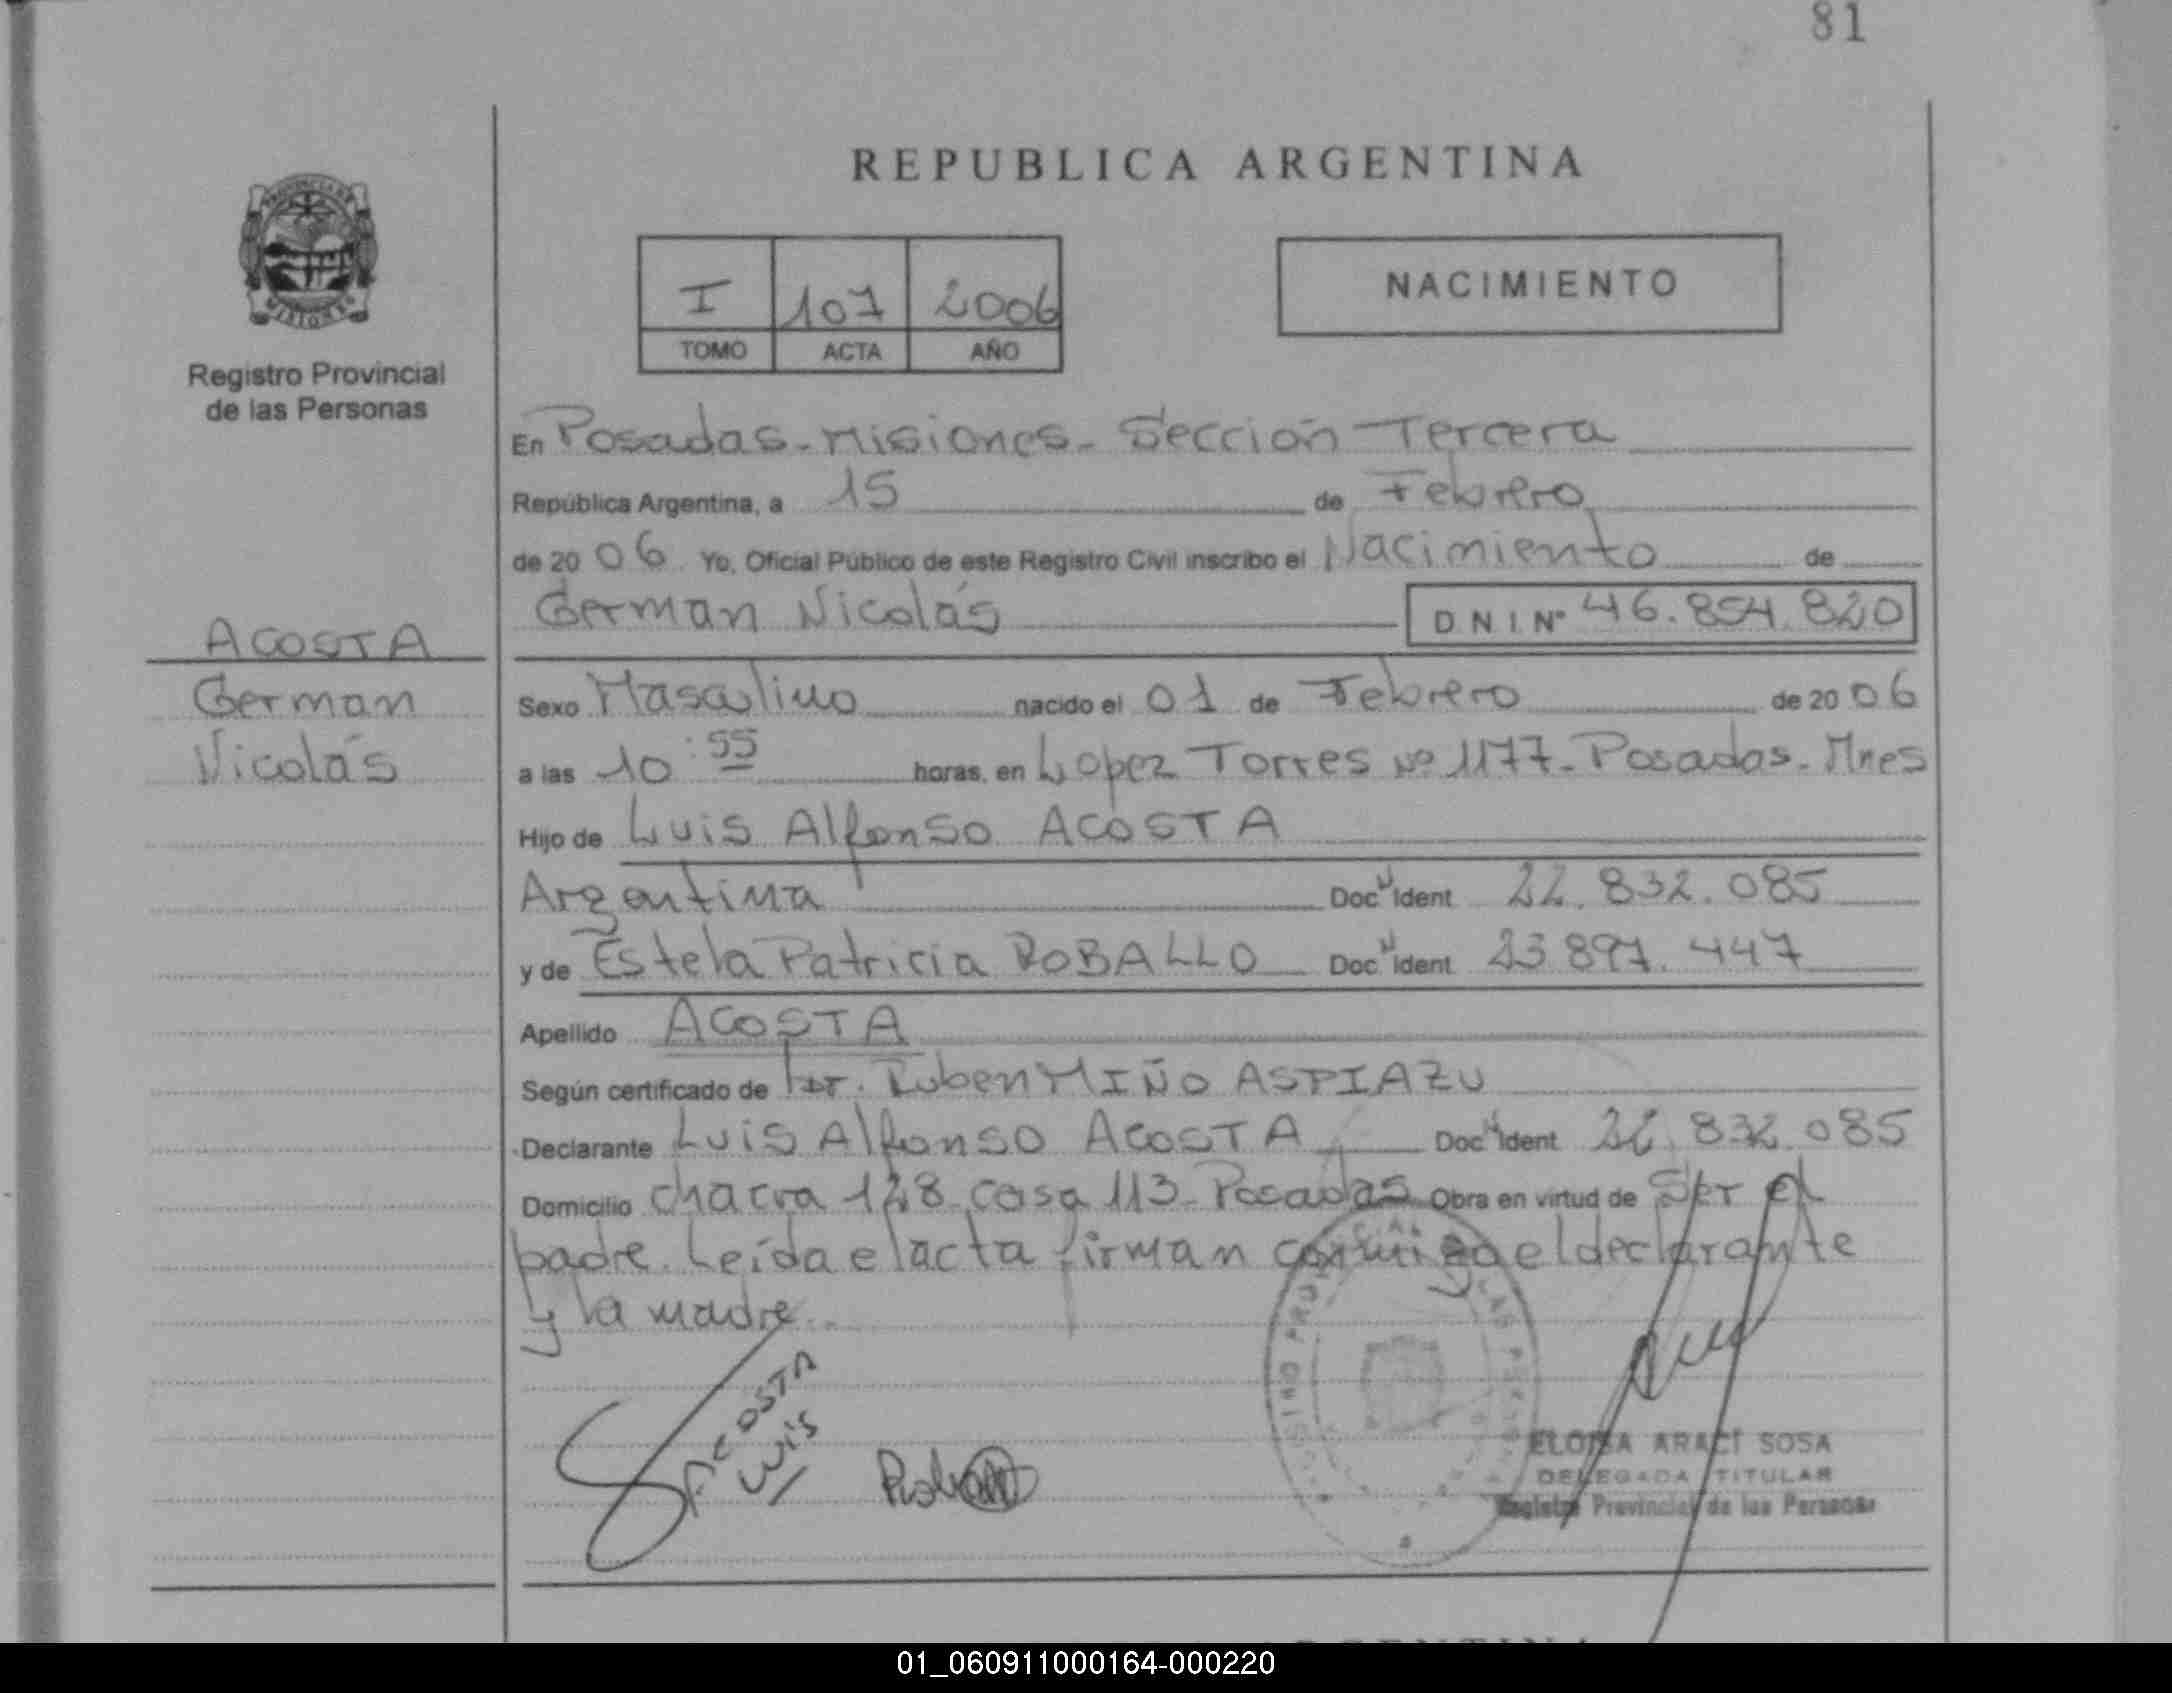 81
REPUBLICA ARGENTINA
PROVINCIA DE
MISIONES
Registro Provincial
de las Personas
I 107 2006
TOMO ACTA AÑO
NACIMIENTO
En Posadas - Misiones - Sección Tercera
República Argentina, a 15 de Febrero
de 20 06 Yo, Oficial Público de este Registro Civil inscribo el Nacimiento de
German Nicolás D N I. Nº 46.854.820
ACOSTA
German
Nicolás
Sexo Masculino nacido el 01 de Febrero de 20 06
a las 10:55 horas, en Lopez Torres Nº 1177 - Posadas - Mnes
Hijo de Luis Alfonso ACOSTA
Argentina Doc Ident 22.832.085
y de Estela Patricia ROBALLO Doc Ident 23.897.447
Apellido ACOSTA
Según certificado de Dr. Ruben MIÑO ASPIAZU
Declarante Luis Alfonso ACOSTA Doc Ident 22.832.085
Domicilio chacra 128 casa 113 - Posadas Obra en virtud de Ser el
padre. Leída el acta firman conmigo el declarante
y la madre.
ACOSTA
Luis
ELOISA ARACÍ SOSA
DELEGADA TITULAR
Registro Provincial de las Personas
01_060911000164-000220